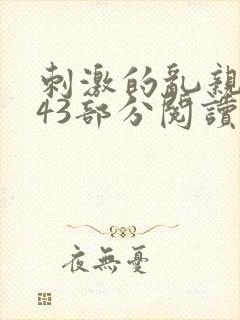 刺激的亂親
43部分閱讀
夜無憂